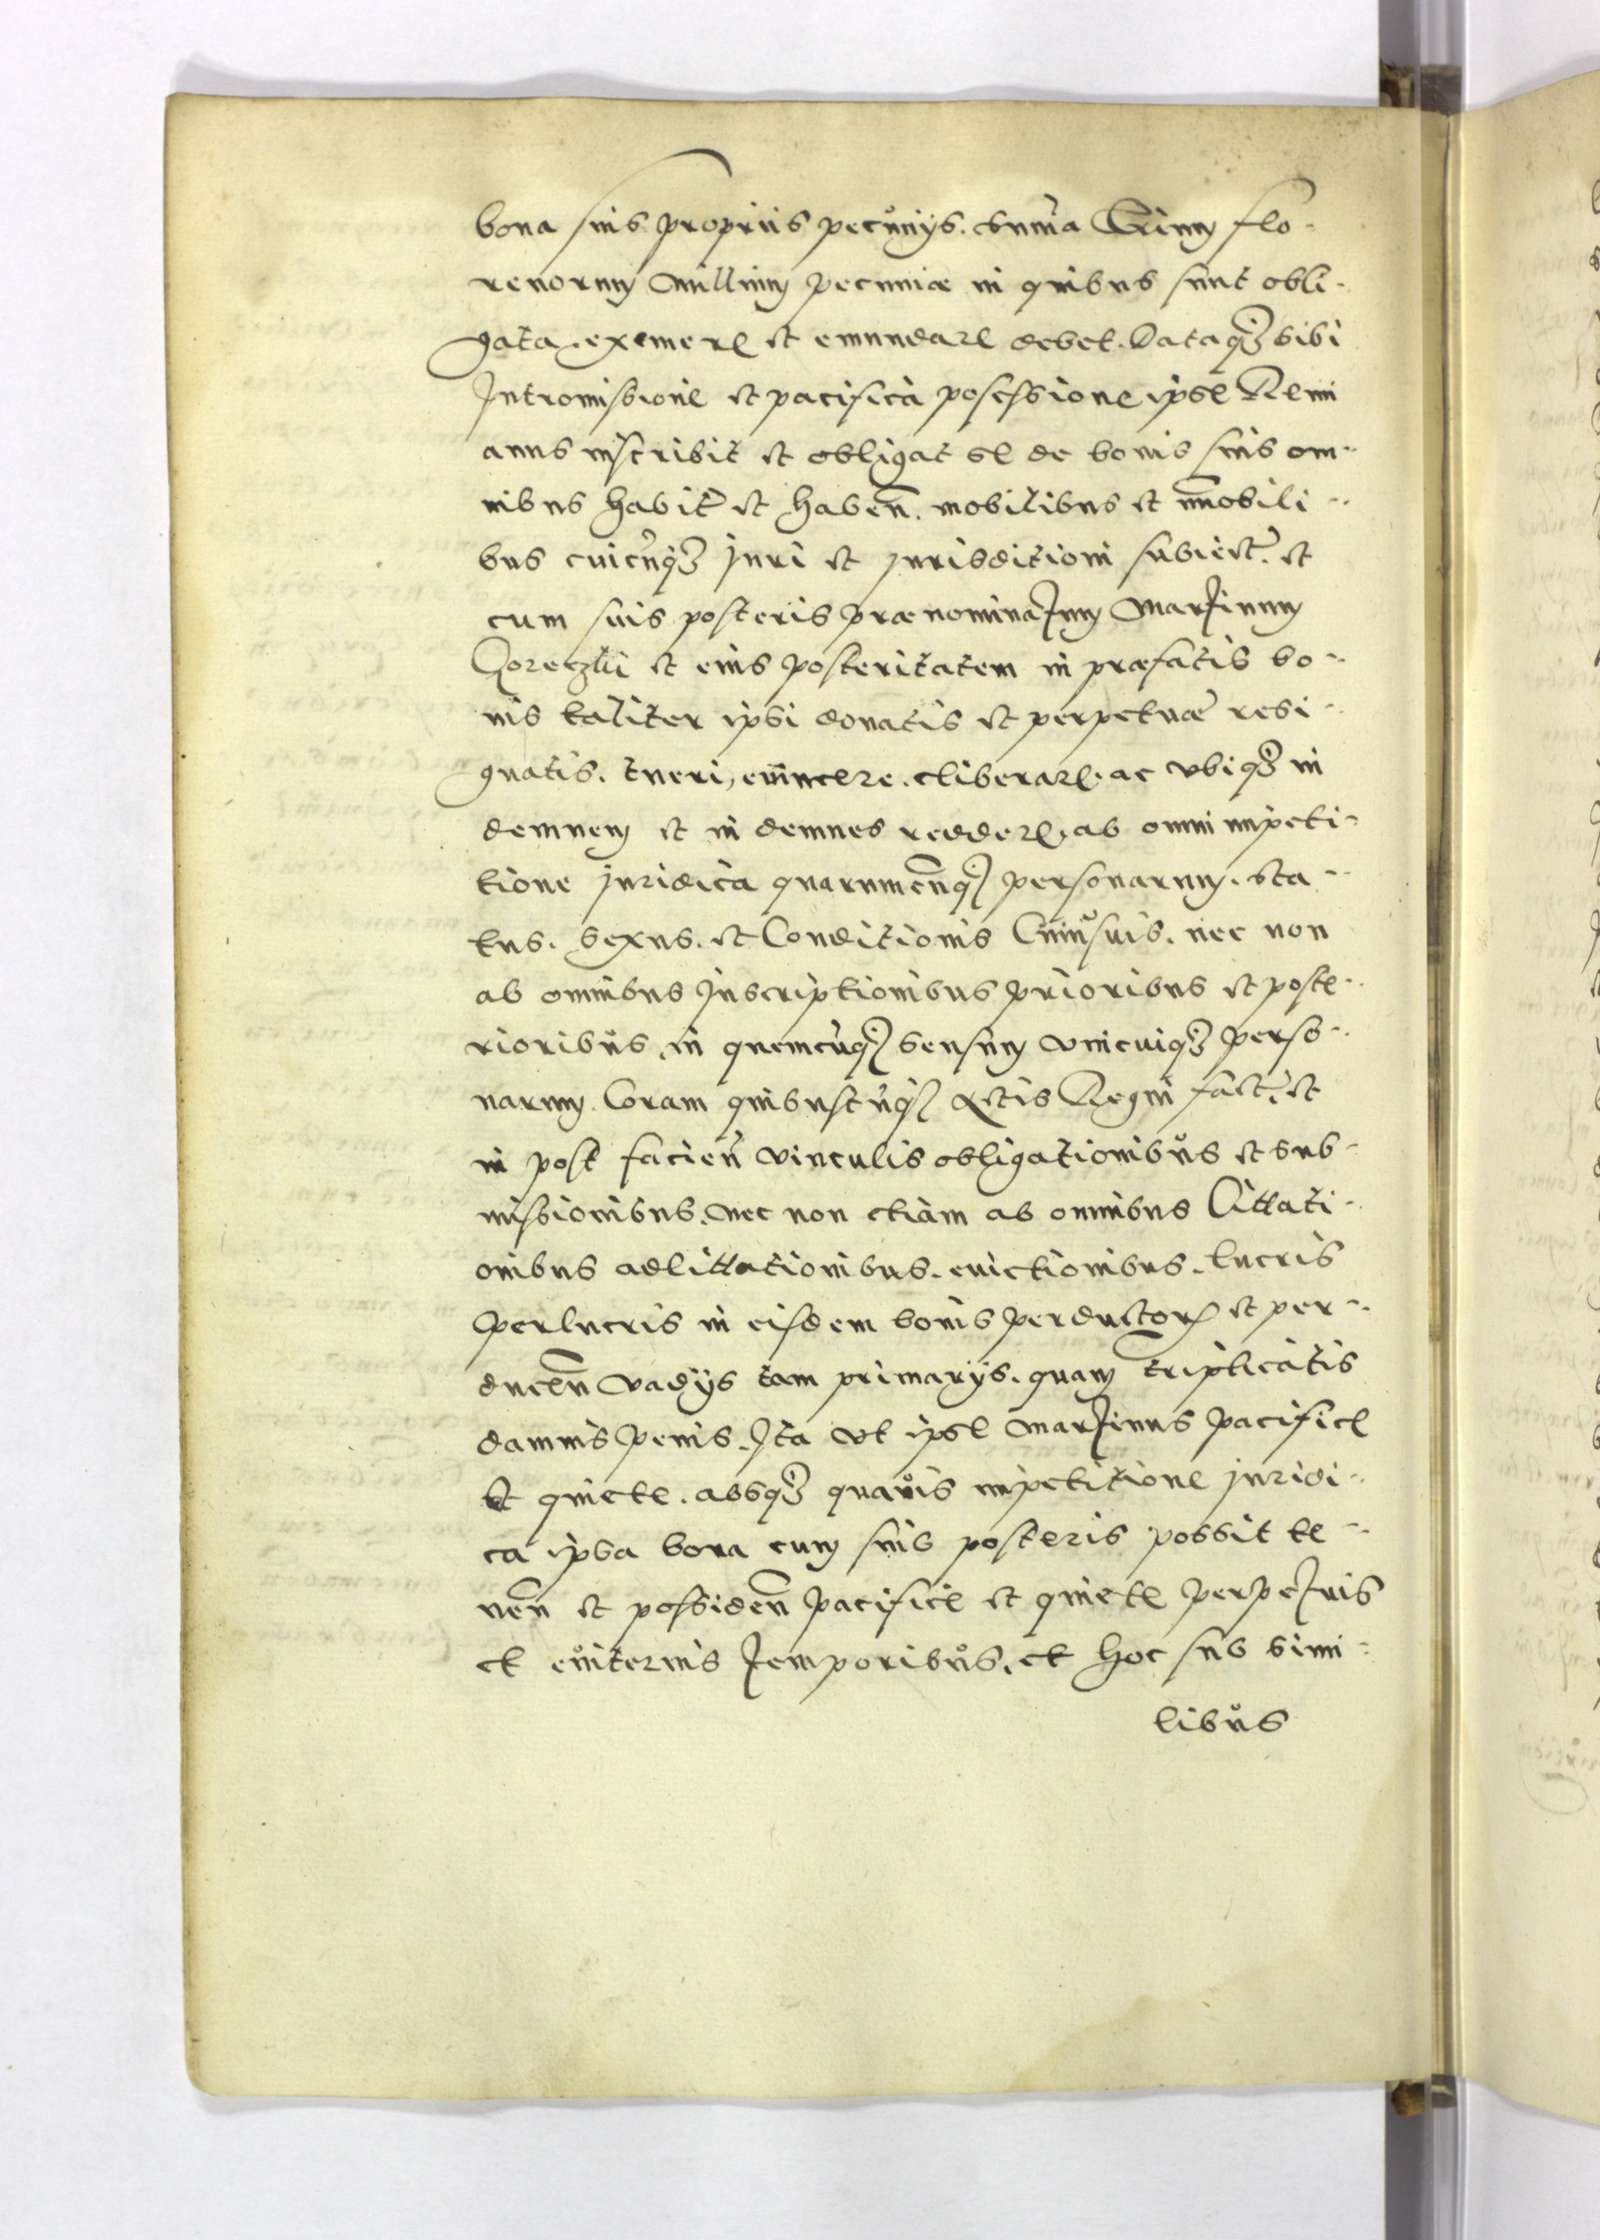 bona suis propriis pecunijs. sum̃a Trium flo-
renorum Millium pecuniæ in quibus sunt obli-
gata. eximere et emundare debet. Dataqȝ sibi
Intromissione et pacifica possessione ipse Remi
anus inscribit et obligat se de bonis suis om-
nibus habit̃ et haben̄. mobilibus et im̄obili-
bus cuicunqȝ juri et jurisditioni subiect̃. et
cum suis posteris prænominatum Martinum
et eius posteritatem in præfatis bo-
nis taliter ipsi donatis et perpetuæ resi-
gnatis. tueri, euincere. eliberare. ac vbiqȝ in
demnem et in demnes reddere. ab omni impeti-
tione juridica quarumcunqȝ personarum. sta-
tus. sexus. et Conditionis Cuiusuis. nec non
ab omnibus Inscriptionibus prioribus et poste-
rioribus. in quemcunqȝ sensum vnicuiqȝ perso-
narum. Coram quibuscunqȝ Actis Regni fact̃. et
in post facien̄ vinculis obligationibus et sub-
missionibus. nec non etiam ab omnibus Cittati-
onibus adcittationibus. euictionibus. lucris
perlucris in eisdem bonis perductoꝝ et per-
ducen̄ vadijs tam primarijs. quam triplicatis
damnis penis. Ita vt ipse Martinus pacifice
et quiete. absqȝ quauis impetitione juridi-
ca ipsa bona cum suis posteris possit te-
nen̄ et possiden̄ pacifice et quiete perpetuis
et euiternis temporibus. et hoc sub simi-
libus